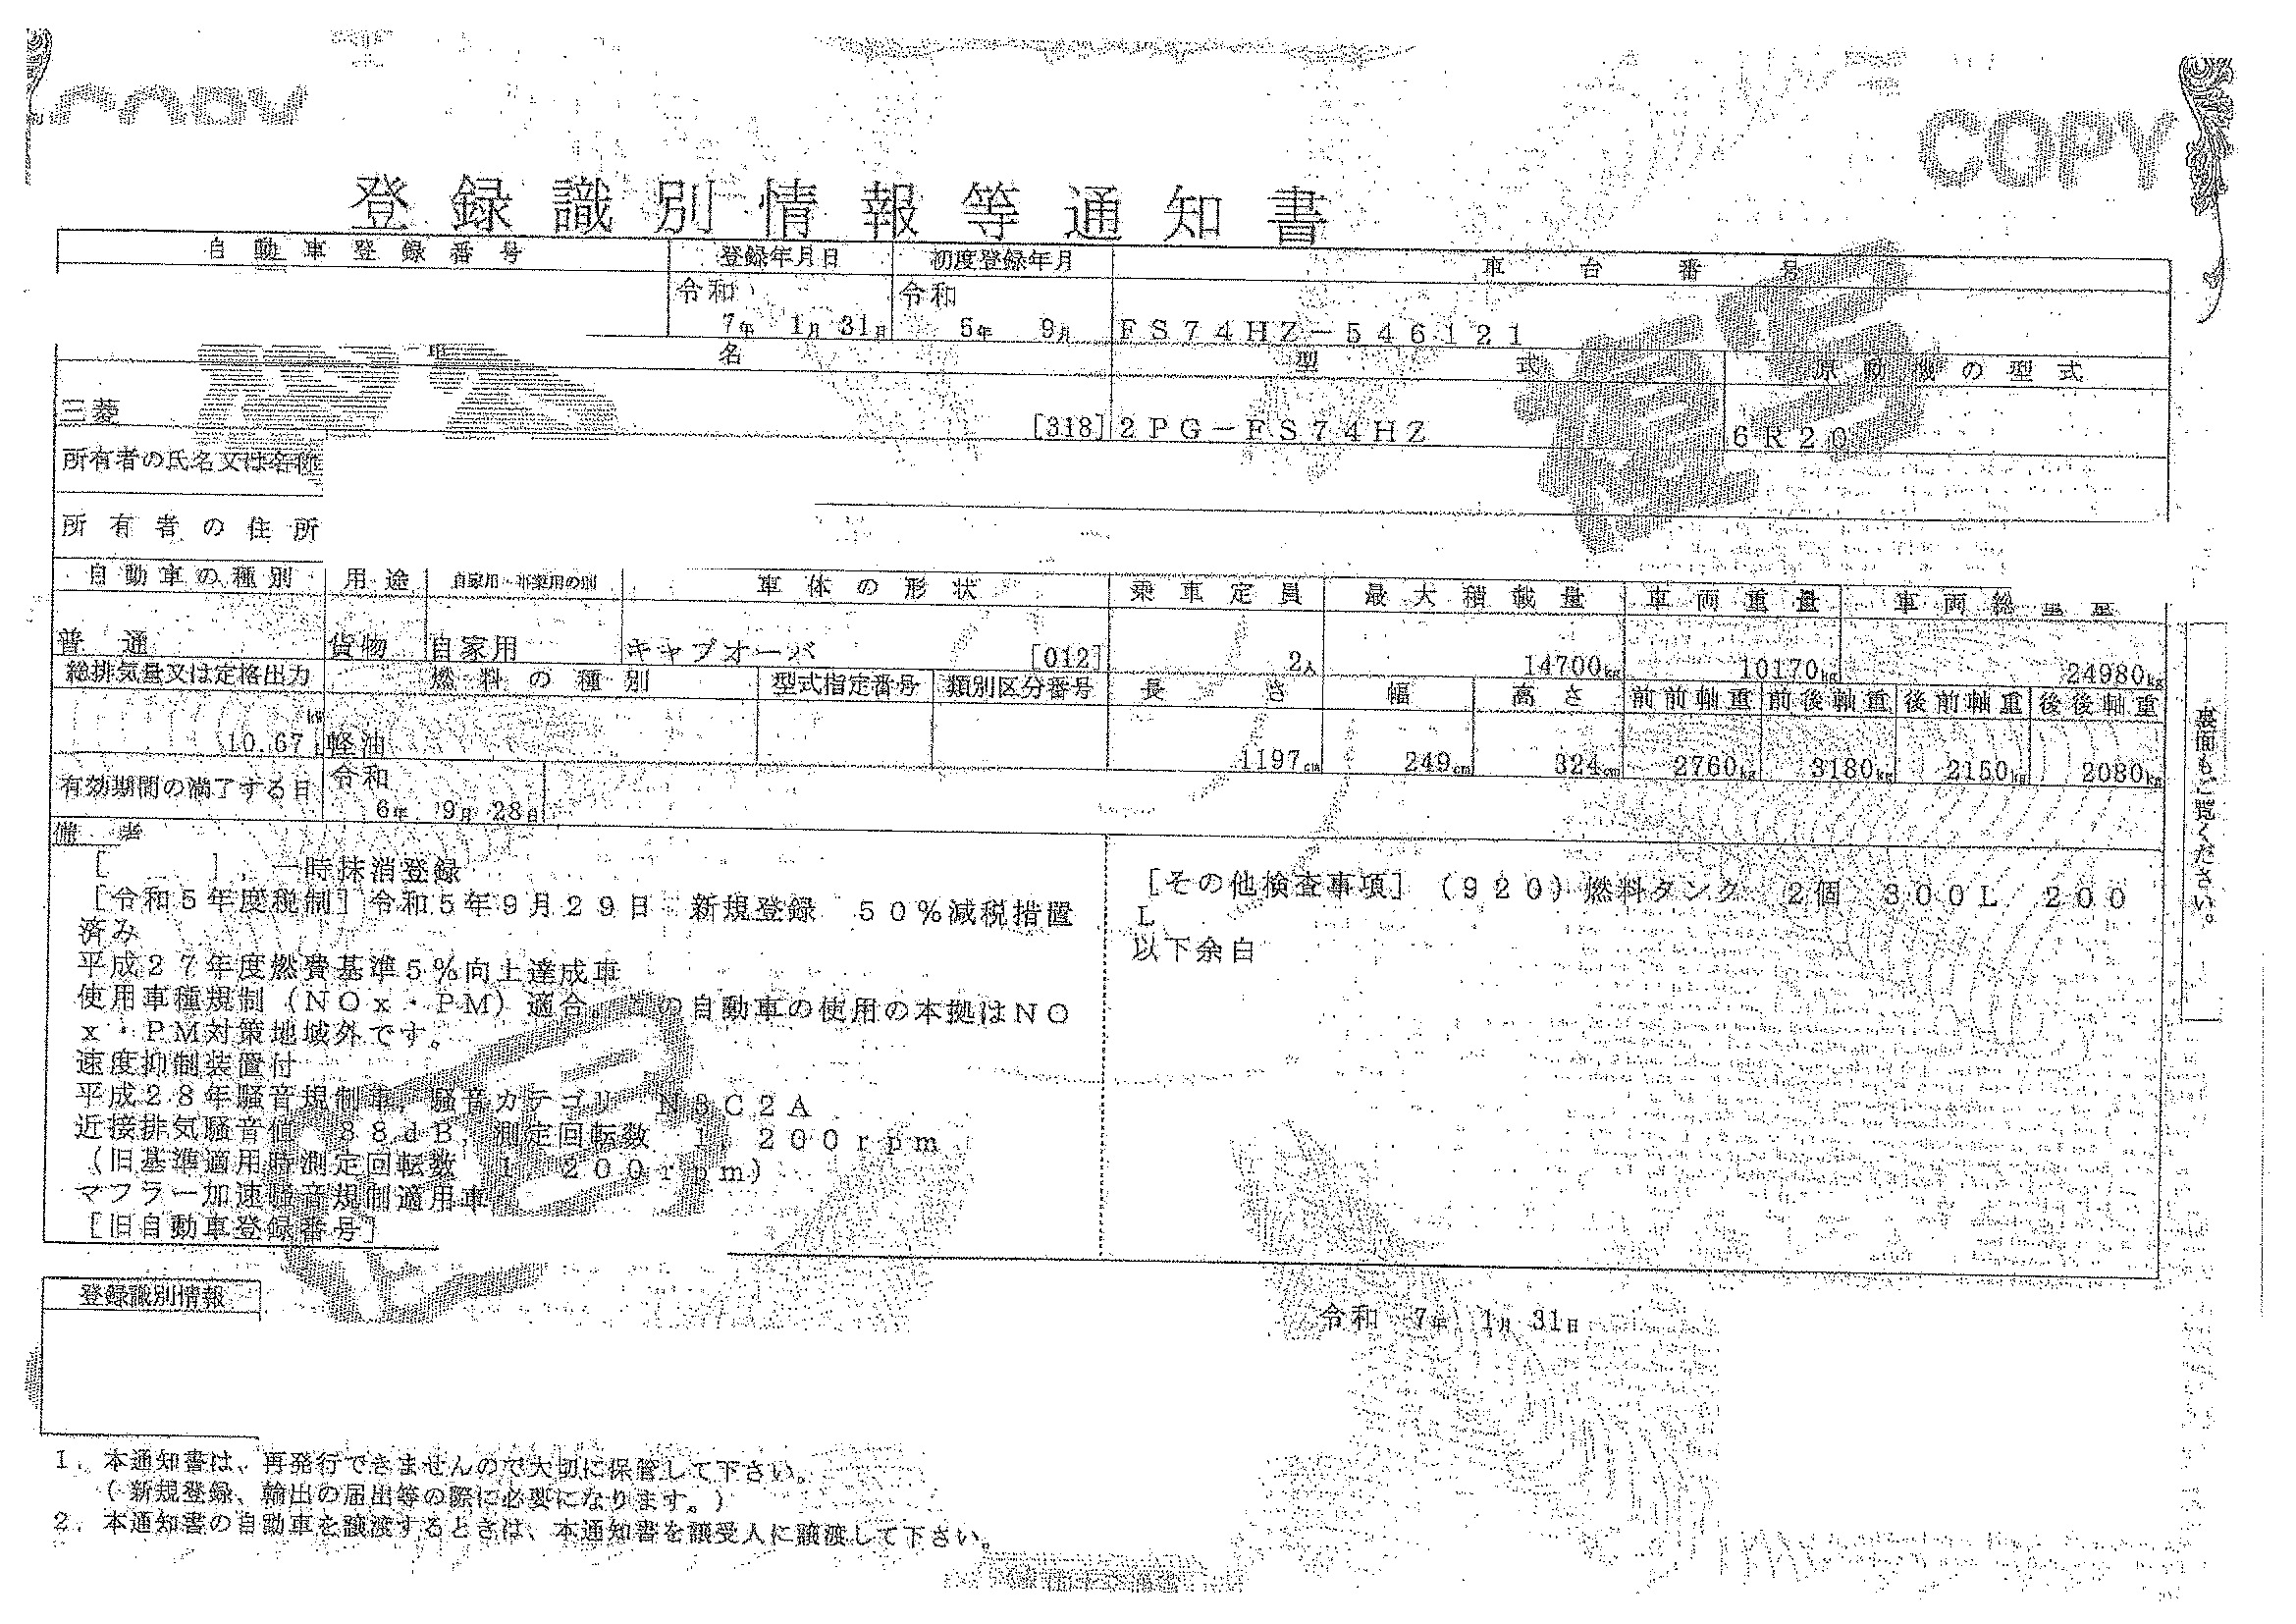 COPY
COPY
登録識別情報等通知書
自動車登録番号 登録年月日 初度登録年月 車台番号
令和 令和
7年 1月 31日 5年 9月 FS74HZ-546121
車名 型式 原動機の型式
三菱 [318] 2PG-FS74HZ 6R20
所有者の氏名又は名称
所有者の住所
自動車の種別 用途 自家用・事業用の別 車体の形状 乗車定員 最大積載量 車両重量 車両総重量
普通 貨物 自家用 キャブオーバ [012] 2人 14700kg 10170kg 24980kg
総排気量又は定格出力 燃料の種別 型式指定番号 類別区分番号 長さ 幅 高さ 前前軸重 前後軸重 後前軸重 後後軸重
kW
10.67 軽油 1197cm 249cm 324cm 2760kg 3180kg 2150kg 2080kg
有効期間の満了する日 令和
6年 9月 28日
備考
[ ],一時抹消登録
[令和5年度税制]令和5年9月29日 新規登録 50%減税措置
済み
平成27年度燃費基準5%向上達成車
使用車種規制(NOx・PM)適合。この自動車の使用の本拠はNO
x・PM対策地域外です。
速度抑制装置付
平成28年騒音規制車,騒音カテゴリ N3C2A
近接排気騒音値 88dB,測定回転数 1,200rpm
(旧基準適用時測定回転数 1,200rpm)
マフラー加速騒音規制適用車
[旧自動車登録番号]
[その他検査事項](920)燃料タンク 2個 300L 200
L
以下余白
裏面もご覧ください。
登録識別情報
令和 7年 1月 31日
1. 本通知書は、再発行できませんので大切に保管して下さい。
(新規登録、輸出の届出等の際に必要になります。)
2. 本通知書の自動車を譲渡するときは、本通知書を譲受人に譲渡して下さい。